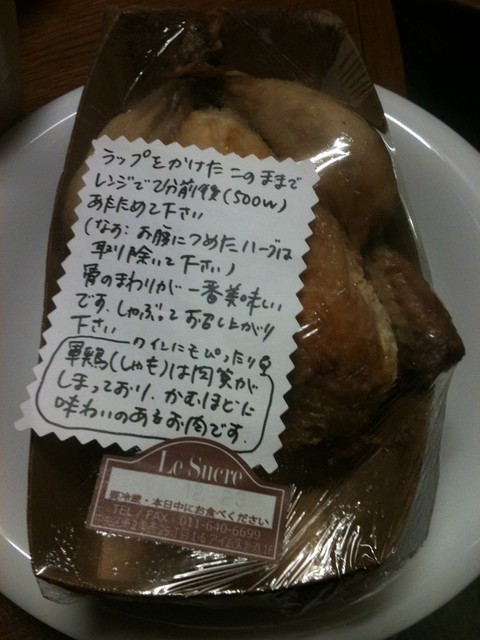 ラップをかけたこのままで
レンジで2分前後(500W)
あたため下さい
(なお、お腹につめたハーブは
取り除いて下さい)
骨のまわりが一番美味しい
です。しゃぶってお召し上がり
下さい
ワインにもぴったり
軍鶏(しゃも)は肉質が
しまっており、かむほどに
味わいのあるお肉です。
Le Sucre
要冷蔵・本日中にお食べください
TEL / FAX 011-640-6699